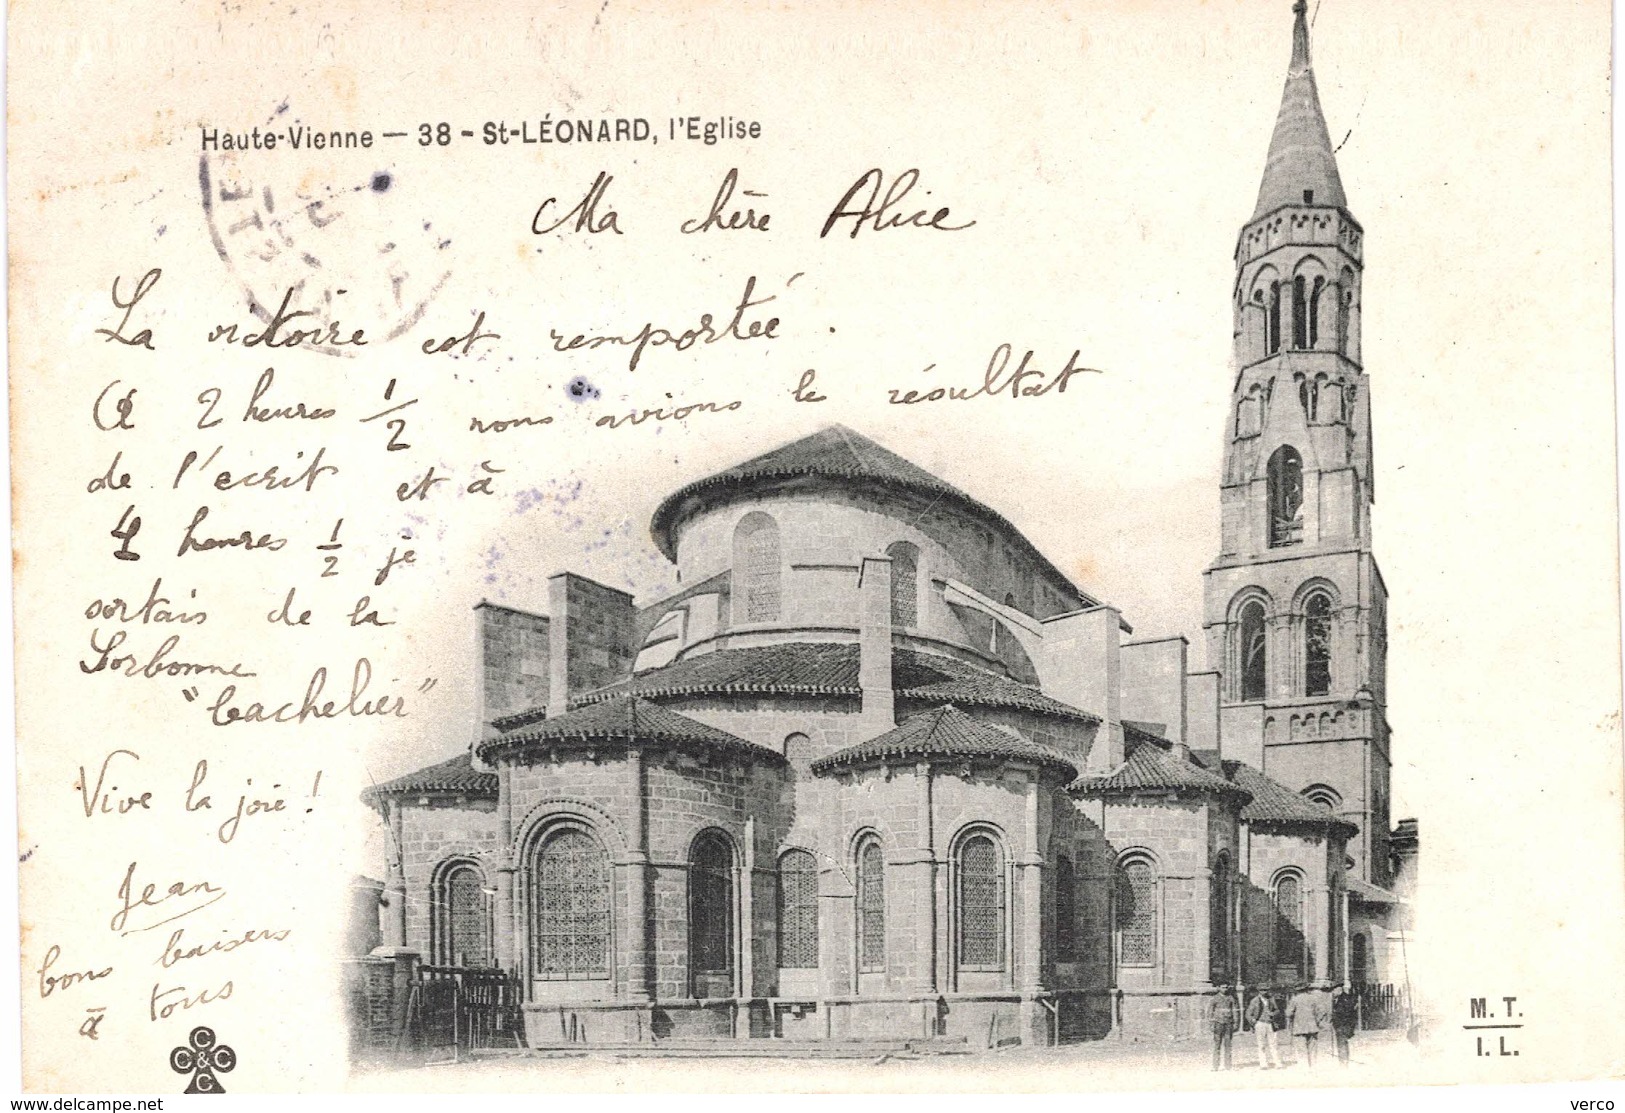 Haute-Vienne — 38 - St-LÉONARD, l'Eglise
Ma chère Alice
La victoire est remportée.
A 2 heures 1/2 nous avions le résultat
de l'écrit et à
4 heures 1/2 je
sortais de la
Sorbonne
"bachelier"
Vive la joie !
Jean
bons baisers
à tous
C
C & C
C
M. T.
I. L.
www.delcampe.net
verco